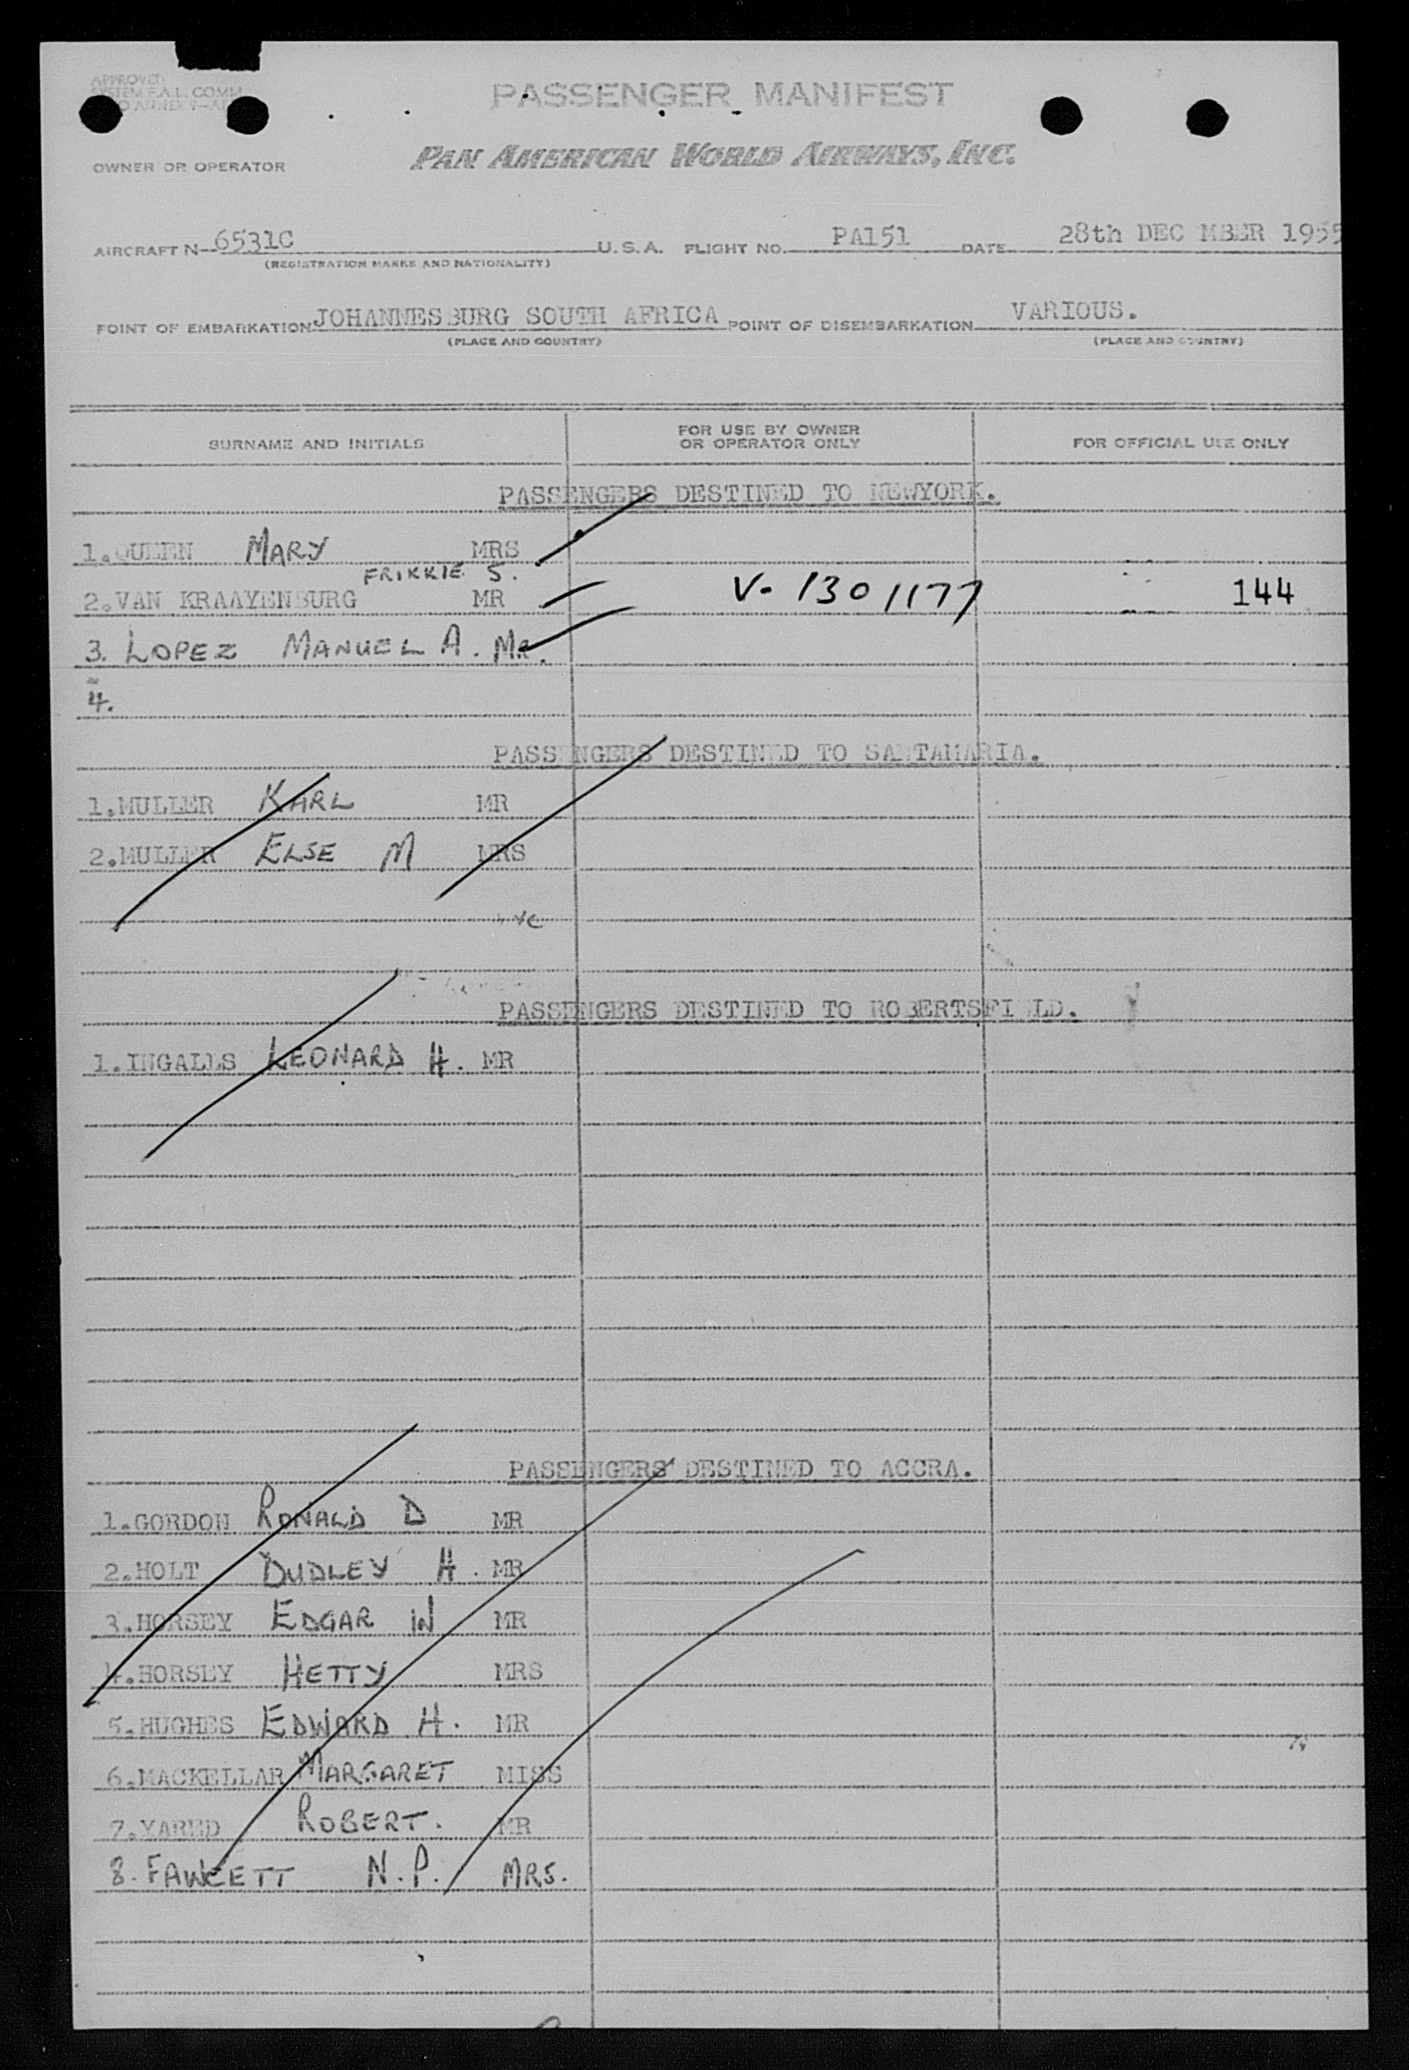 APPROVED
SYSTEM F.A.L. COMM
PASSENGER MANIFEST
OWNER OR OPERATOR PAN AMERICAN WORLD AIRWAYS, INC.
AIRCRAFT N-6531C U.S.A. FLIGHT NO. PA151 DATE 28th DEC MBER 1955
(REGISTRATION MARKS AND NATIONALITY)
POINT OF EMBARKATION JOHANNESBURG SOUTH AFRICA POINT OF DISEMBARKATION VARIOUS.
(PLACE AND COUNTRY) (PLACE AND COUNTRY)
SURNAME AND INITIALS FOR USE BY OWNER OR OPERATOR ONLY FOR OFFICIAL USE ONLY
PASSENGERS DESTINED TO NEWYORK.
1.QUEEN MARY MRS
FRIKKIE S.
2.VAN KRAAYENBURG MR V-1301177 144
3. LOPEZ MANUEL A. MR.
4.
PASSENGERS DESTINED TO SANTAMARIA.
1.MULLER KARL MR
2.MULLER ELSE M MRS
PASSENGERS DESTINED TO ROBERTSFIELD.
1.INGALLS LEONARD H. MR
PASSENGERS DESTINED TO ACCRA.
1.GORDON RONALD D MR
2.HOLT DUDLEY H. MR
3.HORSEY EDGAR W MR
4.HORSEY HETTY MRS
5.HUGHES EDWARD H. MR
6.MACKELLAR MARGARET MISS
7.YARED ROBERT. MR
8. FAWCETT N.P. MRS.